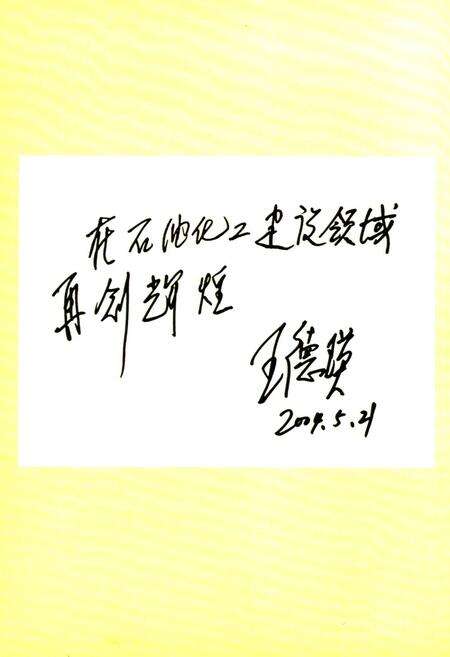 在石油化工建设领域
再创辉煌
王德瑛
2004.5.21